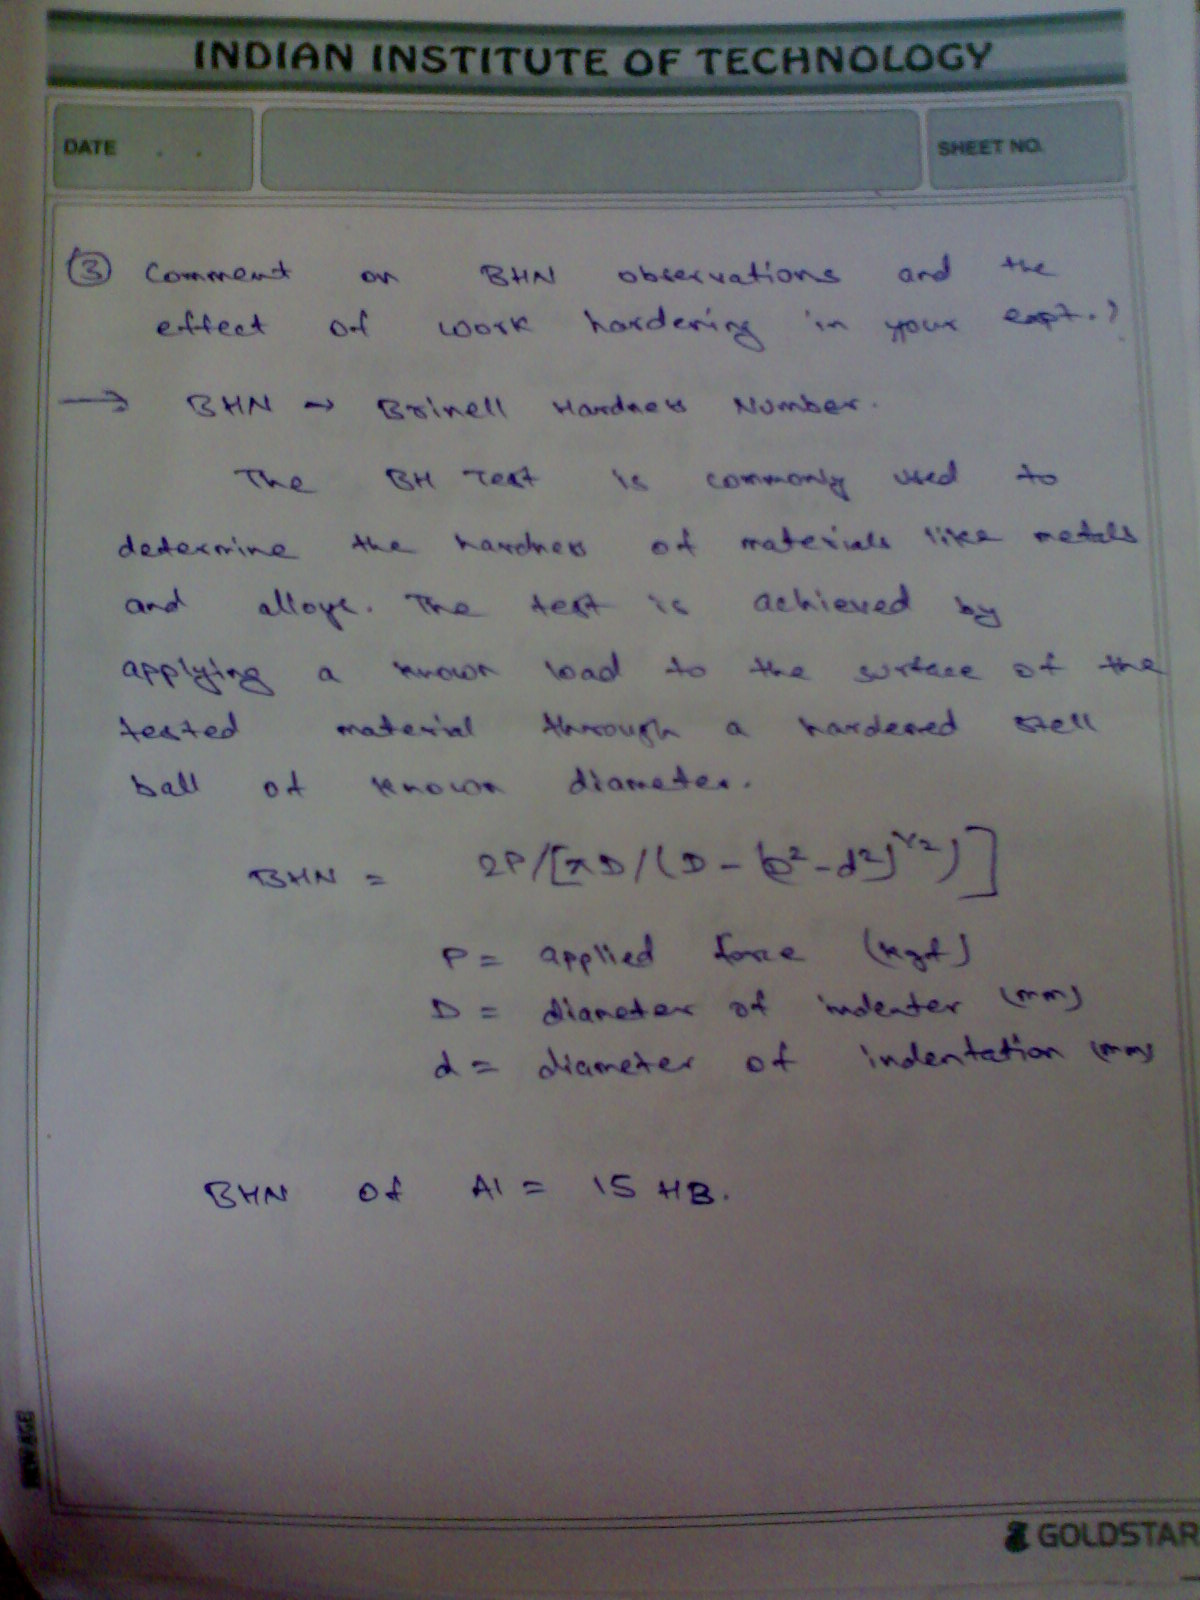 INDIAN INSTITUTE OF TECHNOLOGY
DATE . . SHEET NO.
③ Comment on BHN observations and the
effect of work hardering in your expt.?
→ BHN → Brinell Hardness Number.
The BH Test is commonly used to
determine the hardness of materials like metals
and alloys. The test is achieved by
applying a known load to the surface of the
tested material through a hardened stell
ball of known diameter.
BHN = 2P/[πD/(D-(D²-d²)^1/2)]
P = applied force (kgf)
D = diameter of indenter (mm)
d = diameter of indentation (mm)
BHN of Al = 15 HB.
NEW AGE
GOLDSTAR